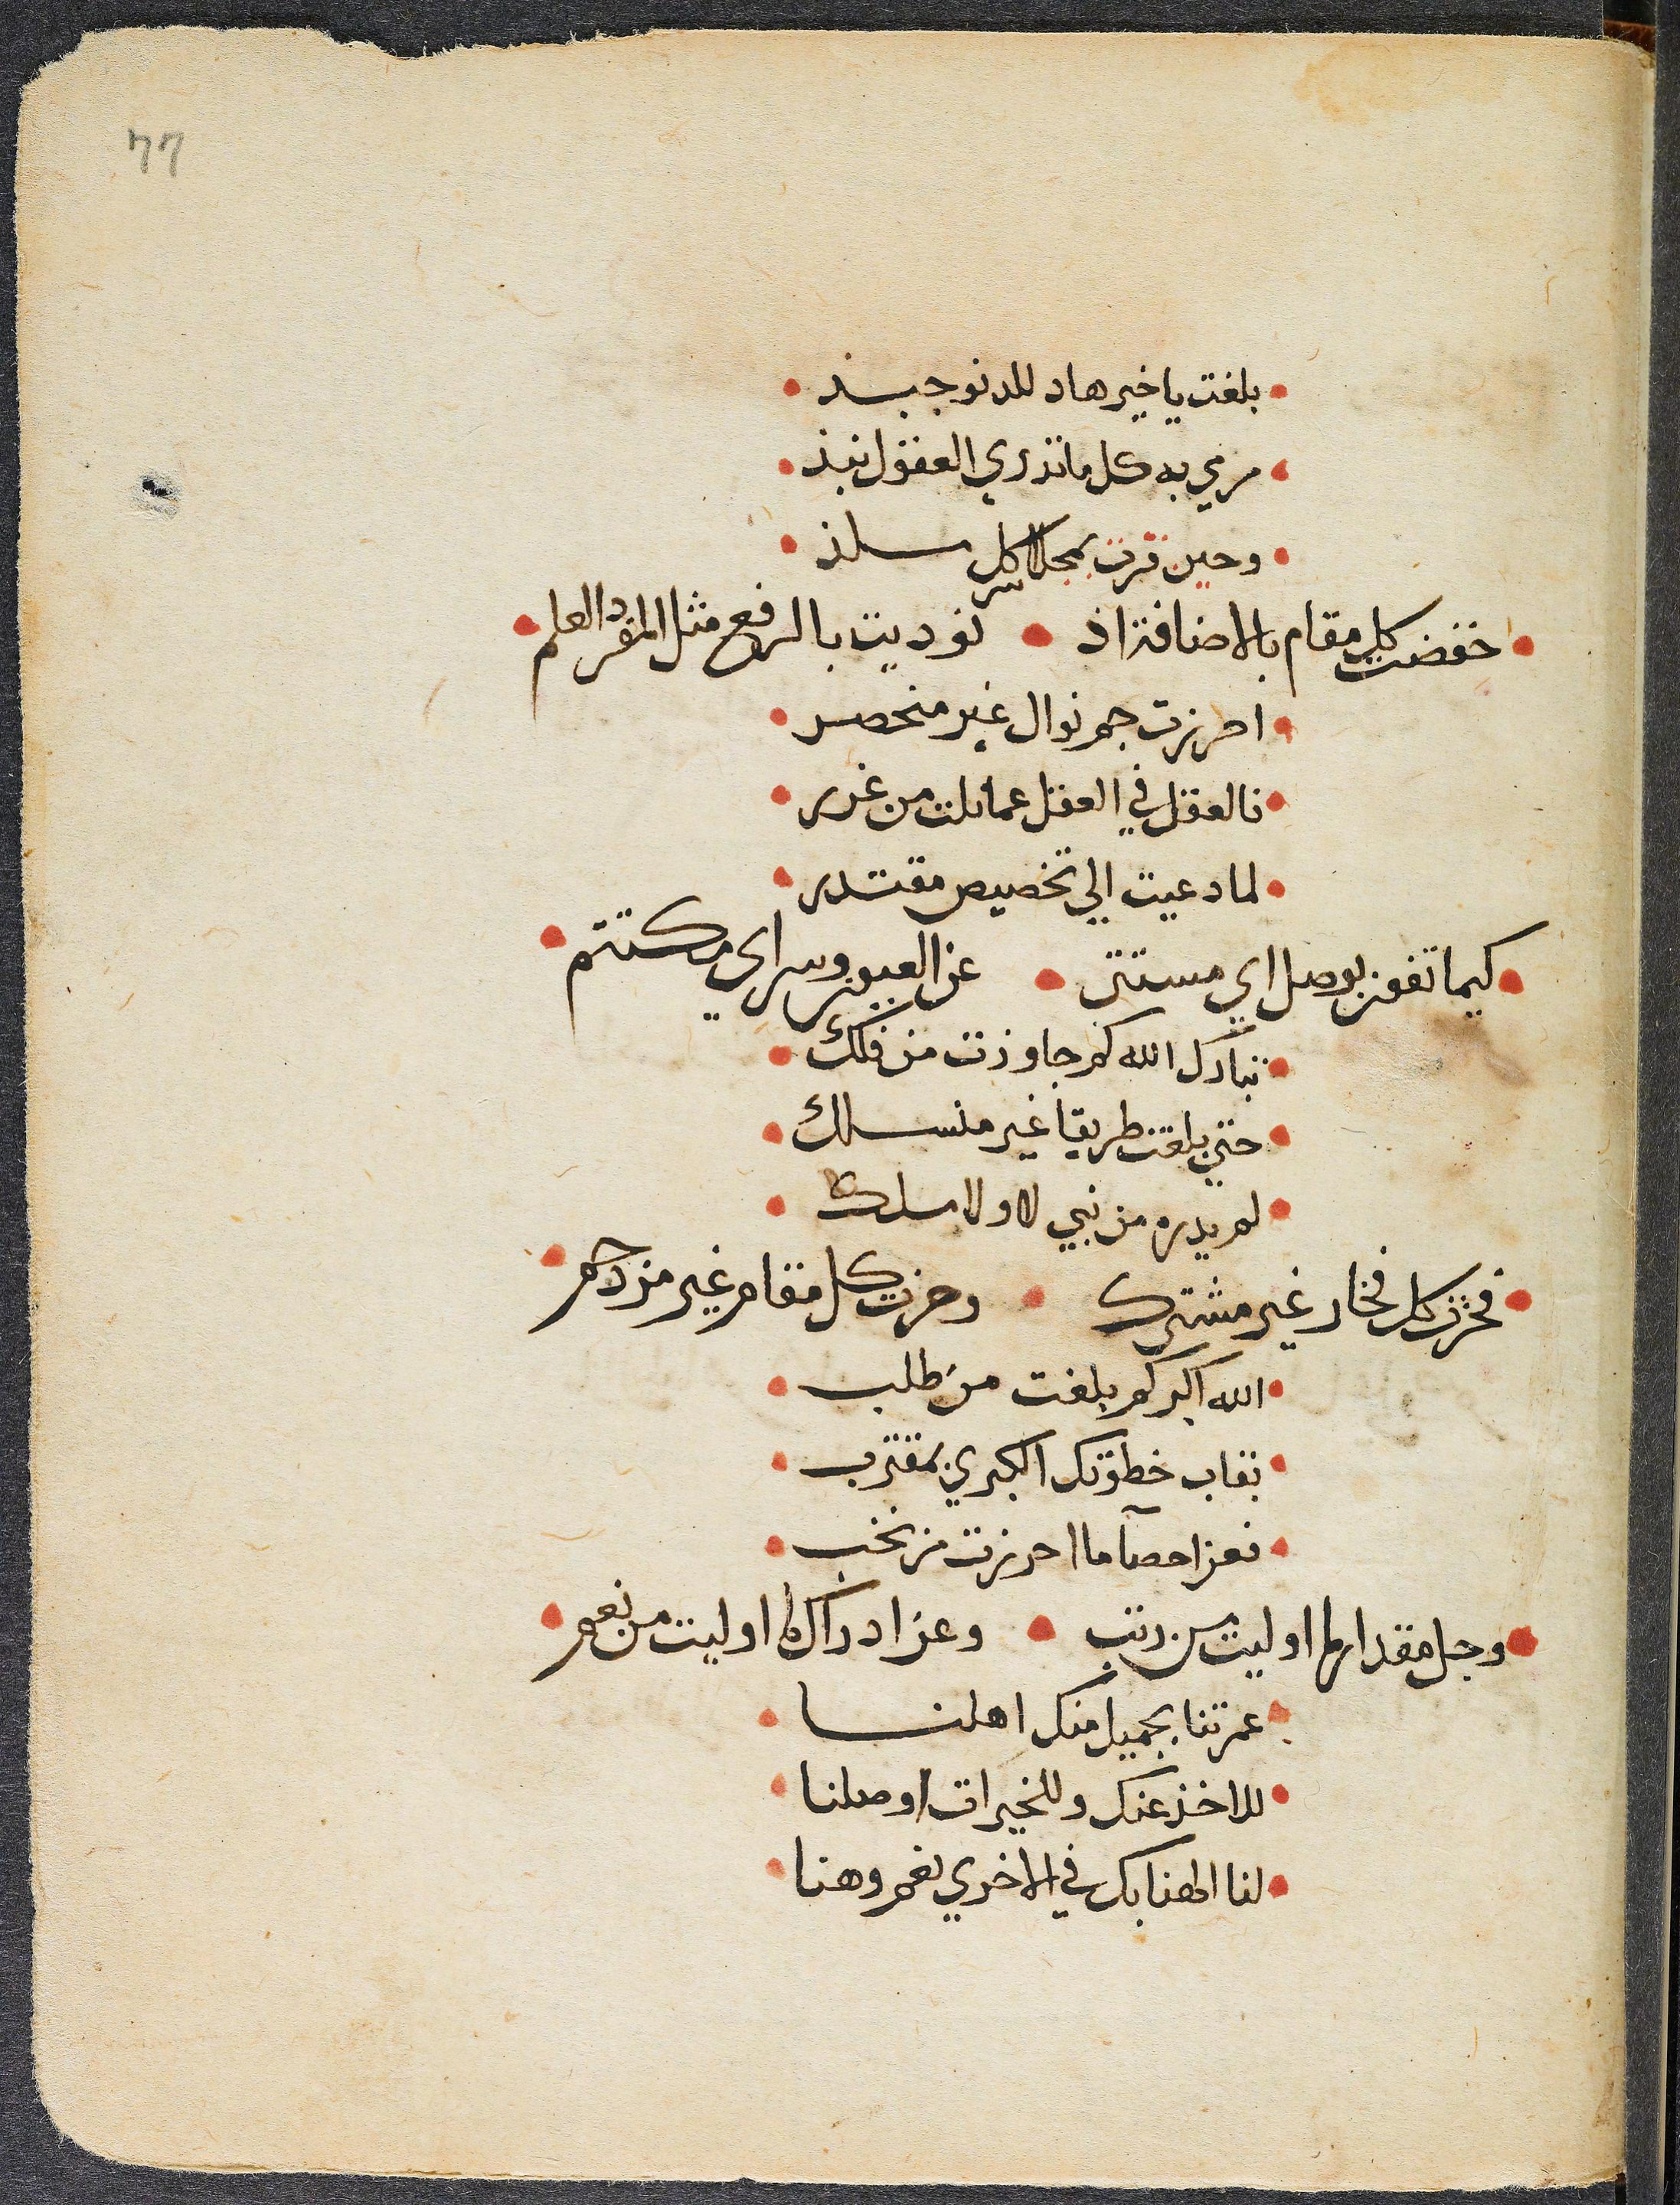 77
بلغت يا خير هاد للدنو جبذ
مرمي به كل ما تدري العقول نبذ
وحين قرت بمجلا كل ستلذ
خفضت كل مقام بالاضافة اذ نوديت بالرفع مثل المفرد العلم
احرزت جم نوال غير منحصر
فالعقل في العقل عما نلت من غرر
لما دعيت الي تخصيص مقتدر
كيما تفوز بوصل اي مستتر عن العيون وسر اي مكتتم
تبارك الله كم جاوزت من فلك
حتي بلغت طريقا غير منسلك
لم يدره من نبي لا ولا ملك
فحزت كل فخار غير مشترك وحزت كل مقام غير مزدحم
الله اكبر كم بلغت من طلب
بقاب خطوتك الكبري بمقترب
فعز احصآ ما احرزت من نخب
وجل مقدار ما اوليت من رتب وعز ادراك ما اوليت من نعم
عمرتنا بجميل منك اهلنا
للاخذ عنك وللخيرات اوصلنا
لنا الهنا بك في الاخري نعم وهنا